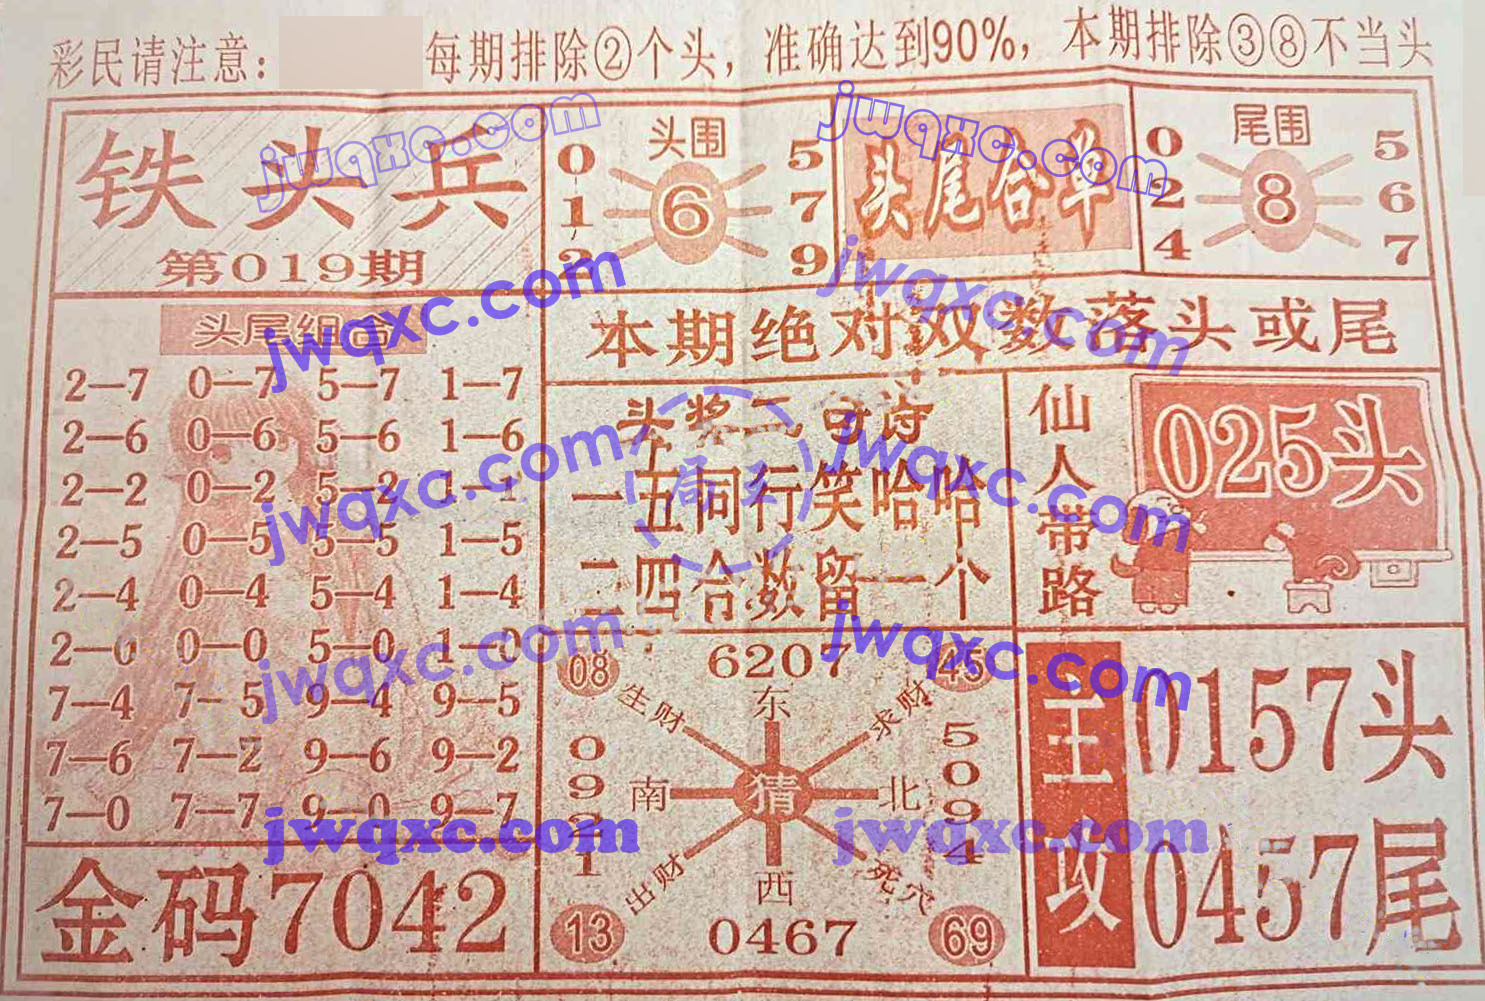 彩民请注意: 每期排除②个头, 准确达到90%, 本期排除③⑧不当头
铁头兵
第019期
头围
0 1 2
6
5 7 9
头尾合单
尾围
0 2 4
8
5 6 7
本期绝对双数落头或尾
头尾组合
2—7 0—7 5—7 1—7
2—6 0—6 5—6 1—6
2—2 0—2 5—2 1—1
2—5 0—5 5—5 1—5
2—4 0—4 5—4 1—4
2—0 0—0 5—0 1—0
7—4 7—5 9—4 9—5
7—6 7—2 9—6 9—2
7—0 7—7 9—0 9—7
金码7042
头奖二句诗
一五同行笑哈哈
二四合数留一个
仙人带路
025头
08 6207 45
生财 东 求财
0921 南 猜 北 5094
出财 西 死穴
13 0467 69
主攻
0157头
0457尾
jwqxc.com
jwqxc.com
jwqxc.com
jwqxc.com
jwqxc.com
jwqxc.com
jwqxc.com
jwqxc.com
jwqxc.com
jwqxc.com